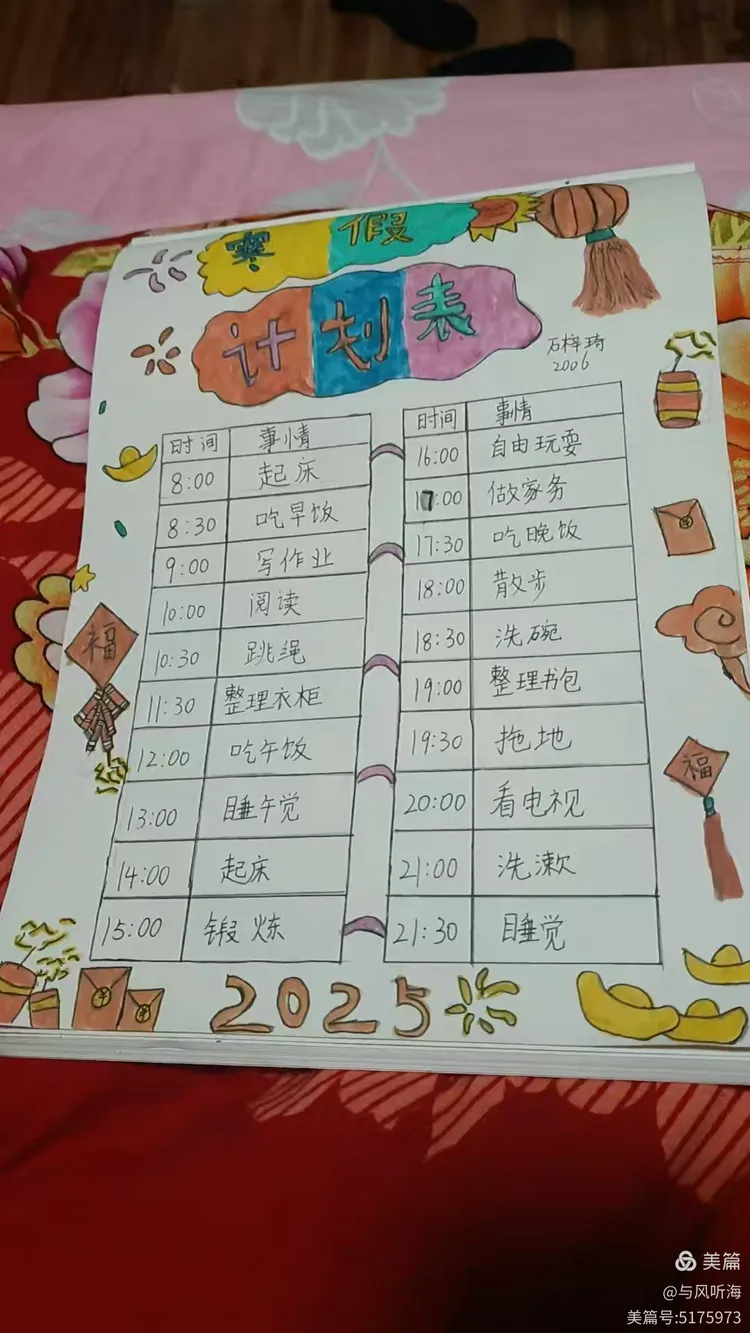 寒假
计划表
石梓琦
2006
时间 事情
8:00 起床
8:30 吃早饭
9:00 写作业
10:00 阅读
10:30 跳绳
11:30 整理衣柜
12:00 吃午饭
13:00 睡午觉
14:00 起床
15:00 锻炼
时间 事情
16:00 自由玩耍
17:00 做家务
17:30 吃晚饭
18:00 散步
18:30 洗碗
19:00 整理书包
19:30 拖地
20:00 看电视
21:00 洗漱
21:30 睡觉
福
福
2025
美篇
@与风听海
美篇号:5175973